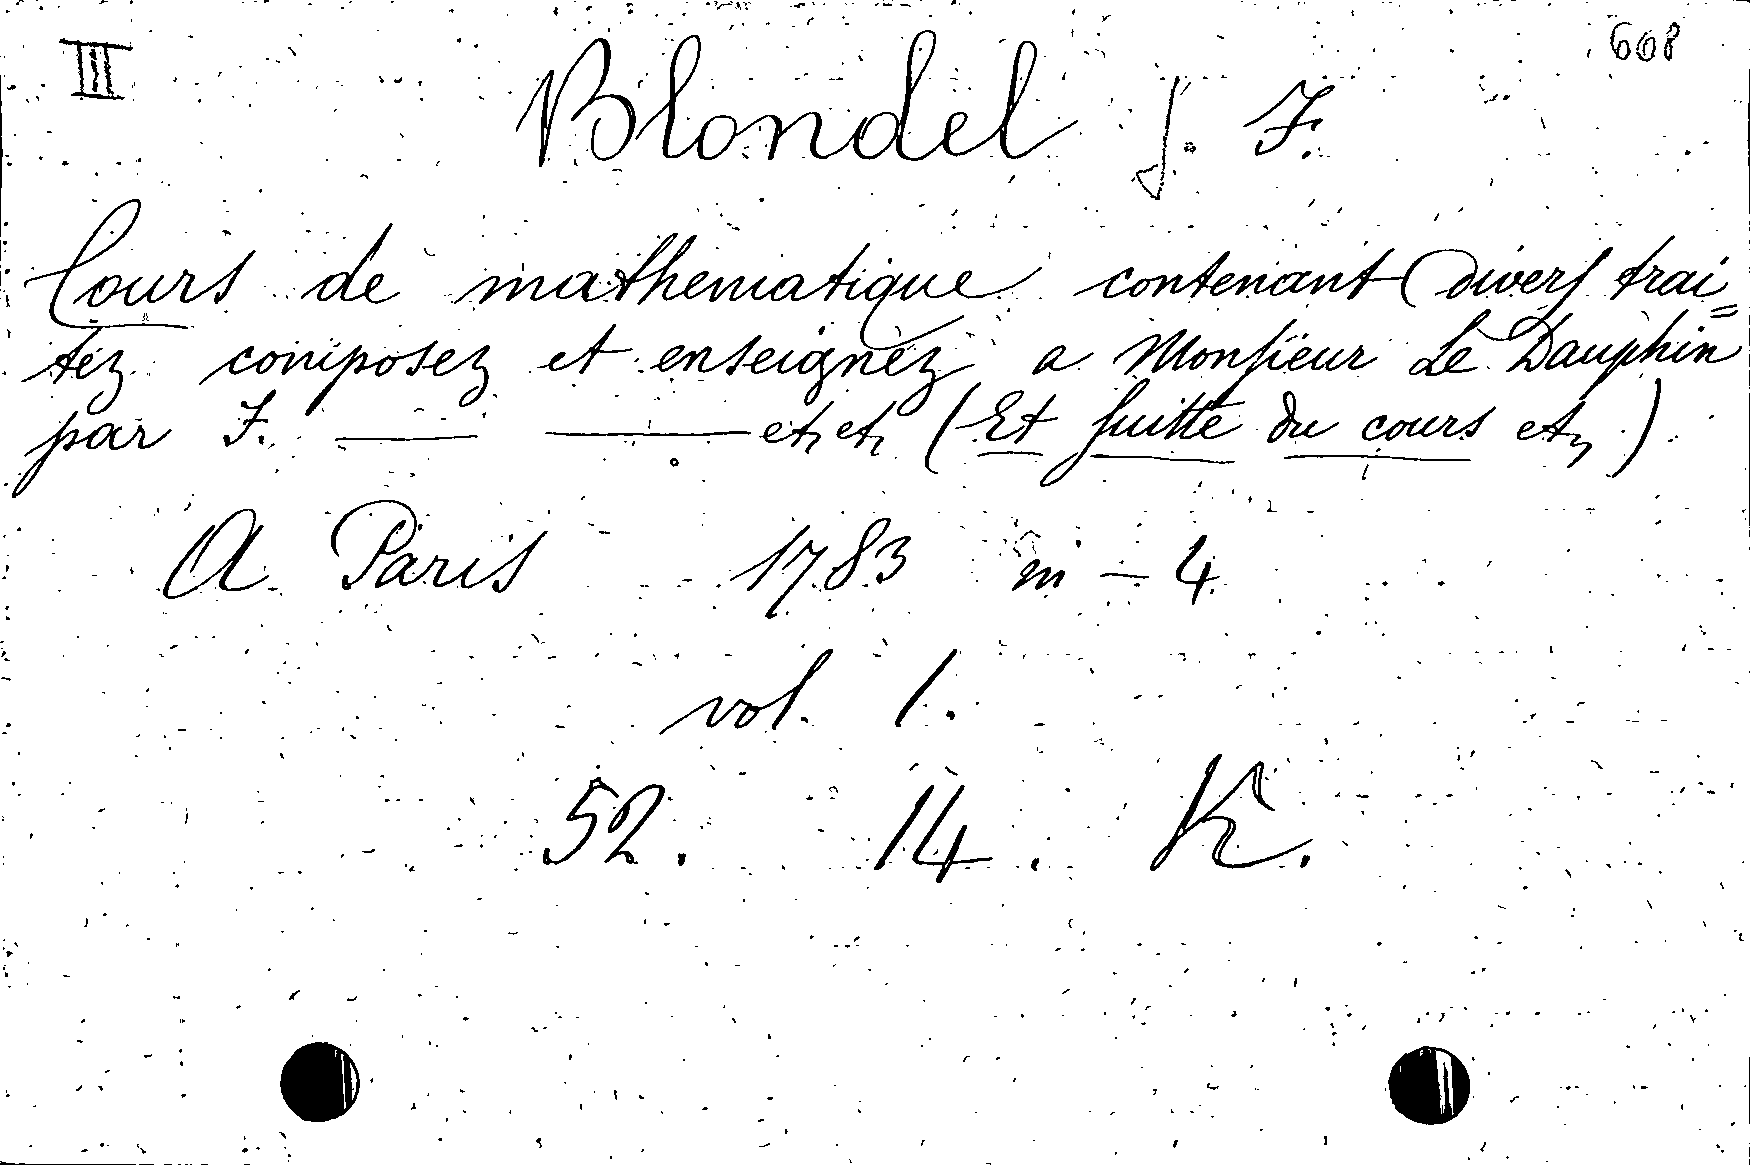 III 608
Blondel J. F.
Cours de mathematique contenant divers trai=
tez composez et enseignez a Monsieur Le Dauphin
par F. —— —— etc etc (Et suitte du cours etc)
A Paris 1783 in – 4
vol. 1.
52. 14. K.